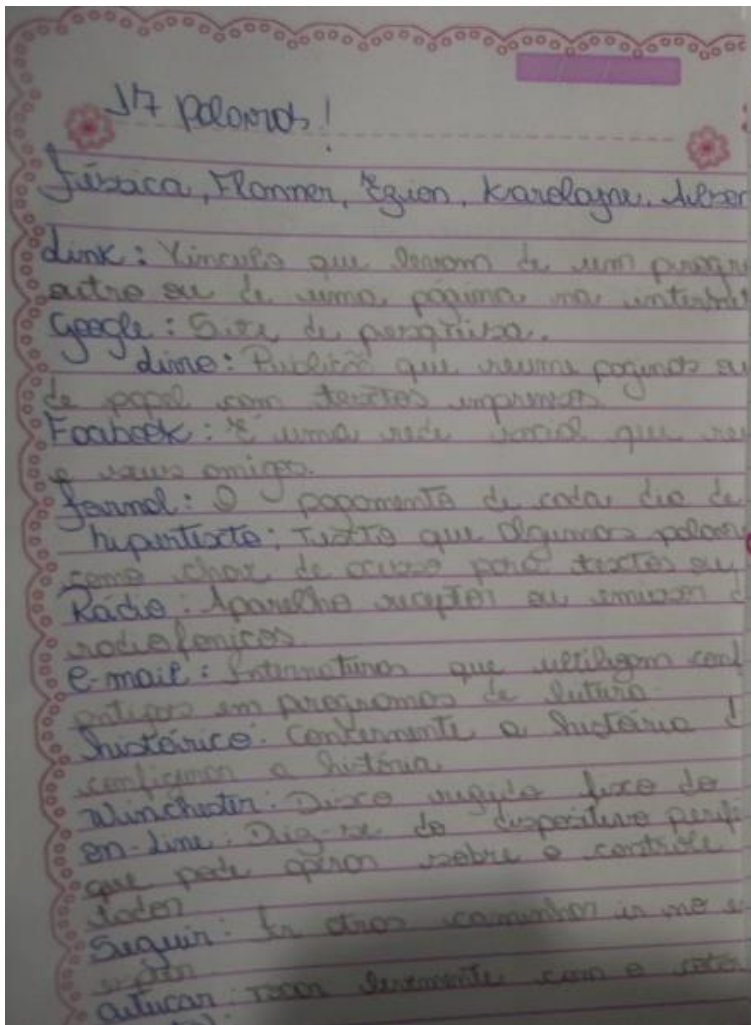 17 palavras!
Jéssica, Flanner, Karolayne,
Link: Vinculo que levam de um
outro ou de uma página na internet
Google: Site de pesquisa.
Livro: que reune paginas ou
de papel com textos impressos
Foabook: É uma rede social que
e seus amigos
Jornal: O pagamento de cada dia de
hipertexto: Texto que algumas
como de acesso para textos ou
Rádio: Aparelho receptor ou emissor d
radiofonicos
e-mail: Internautas que utilizam
antigos em programas de leitura
histórico: Concernente a história d
a história
Winchester: Disco rigido fixo do
on-line: Diz-se do dispositivo
que pode operar sobre o controle
Seguir: Ir atras caminhar ir no
cutucar: tocar levemente com o